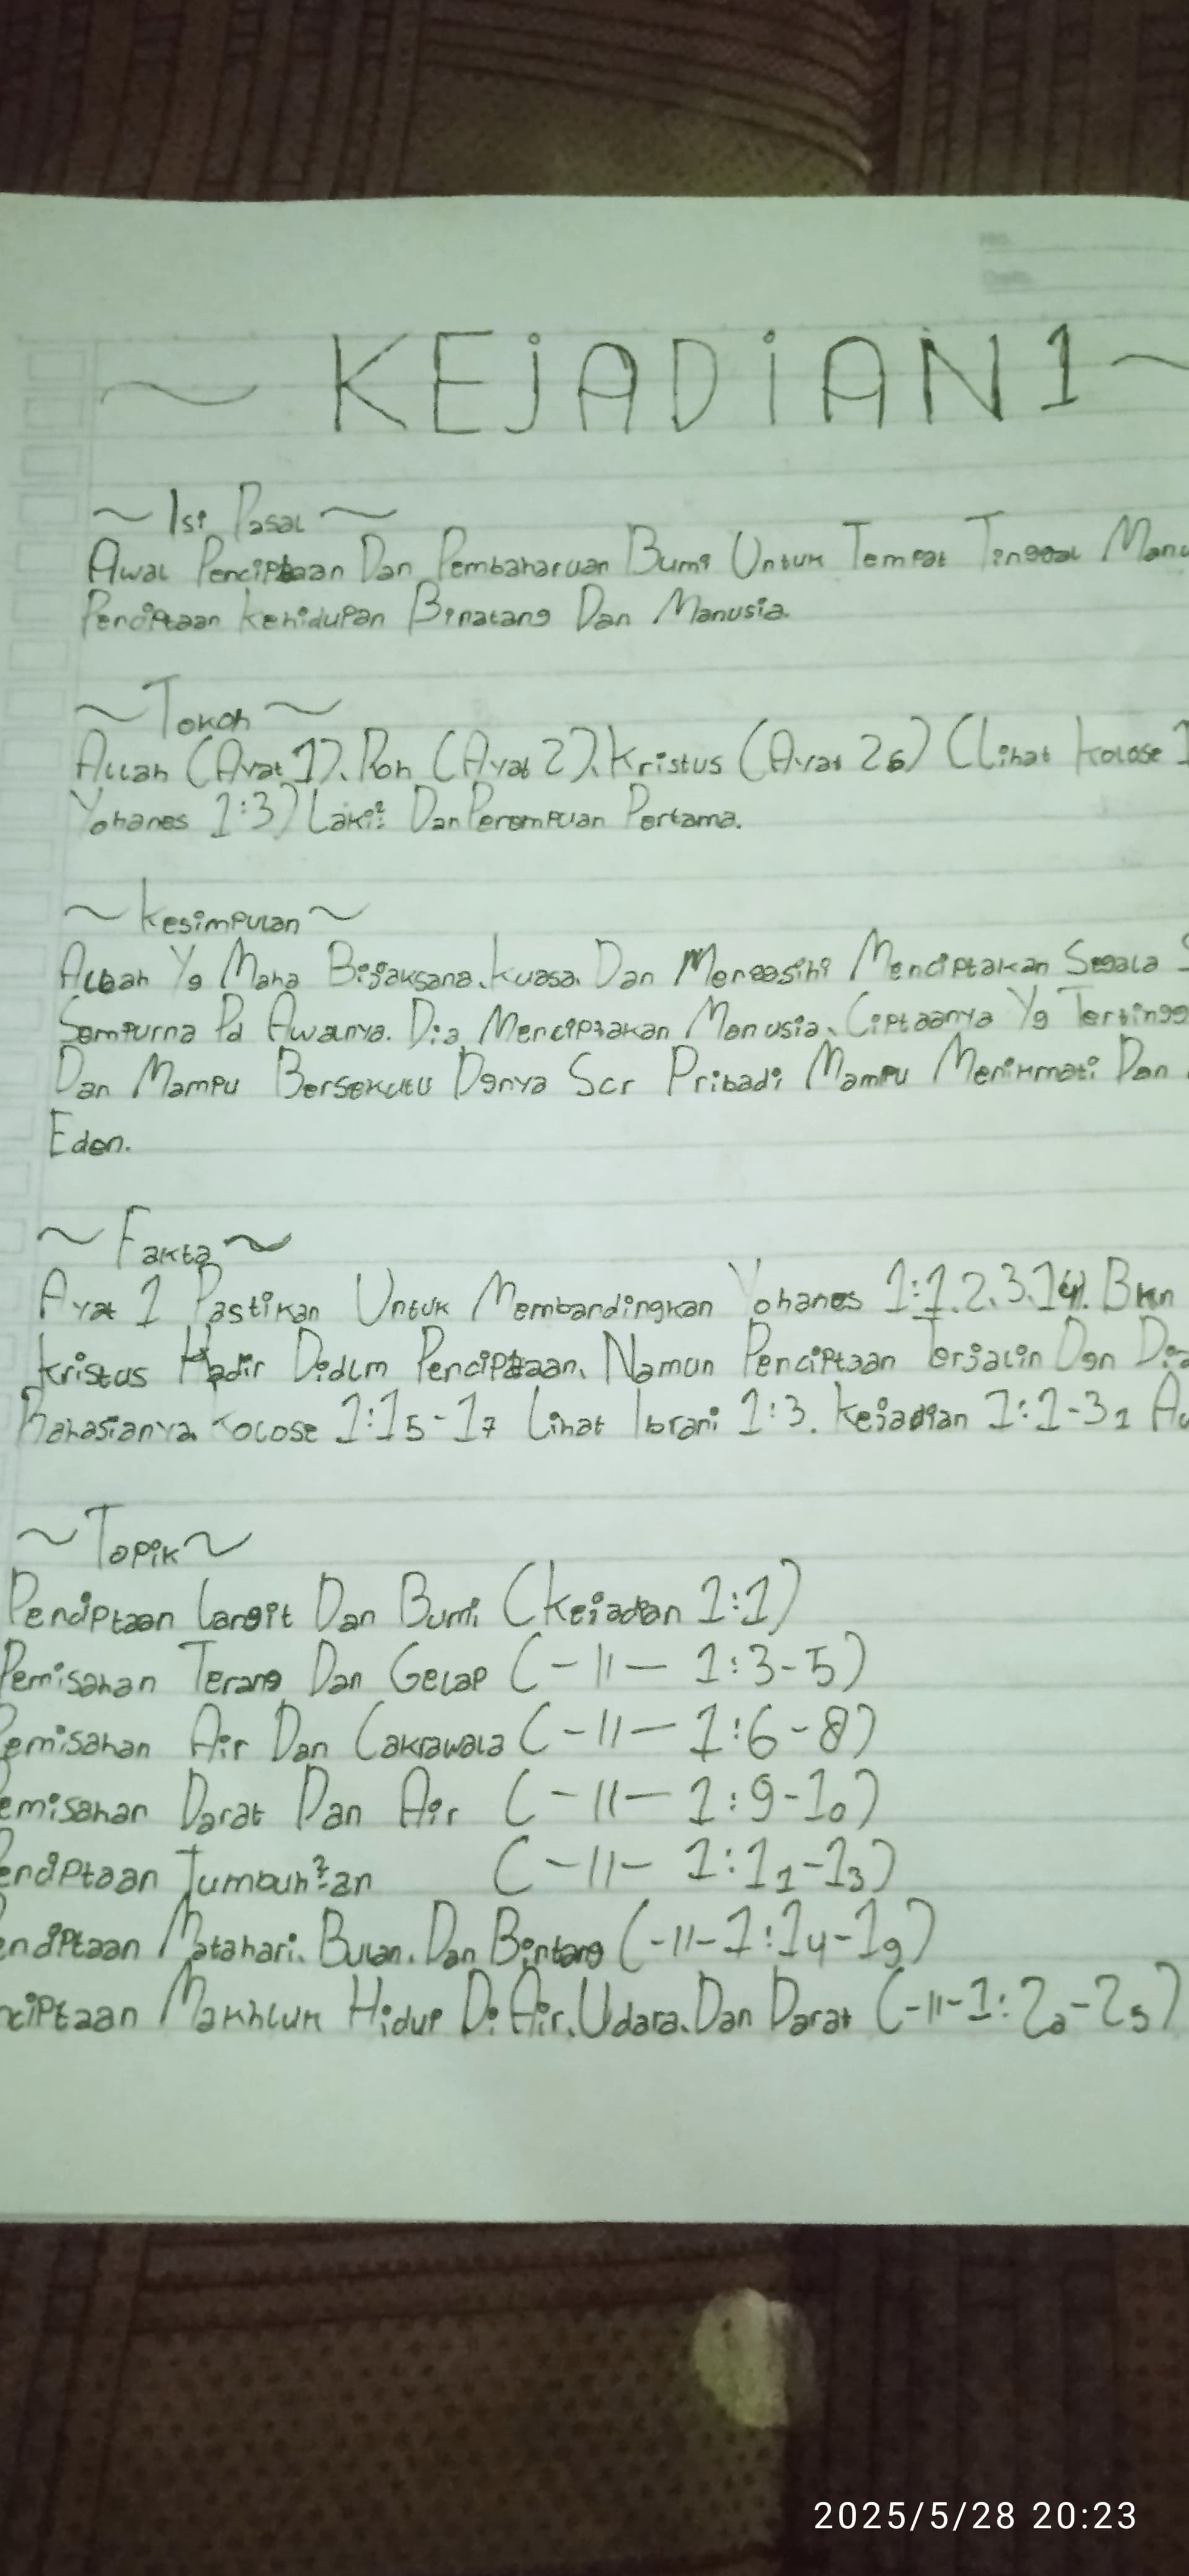 ~ KEJADIAN 1 ~
~ Isi Pasal ~
Awal Penciptaan Dan Pembaharuan Bumi Untuk Tempat Tinggal Manu
Penciptaan Kehidupan Binatang Dan Manusia.
~ Tokoh ~
Allah (Ayat 1), Roh (Ayat 2), Kristus (Ayat 26) (Lihat Kolose 1
Yohanes 1:3) Laki² Dan Perempuan Pertama.
~ Kesimpulan ~
Allah Yg Maha Bijaksana, Kuasa, Dan Mengasihi Menciptakan Segala S
Sempurna Pd Awalnya. Dia Menciptakan Manusia, Ciptaanya Yg Tertingg
Dan Mampu Bersekutu Dgnya Scr Pribadi Mampu Menikmati Dan
Eden.
~ Fakta ~
Ayat 1 Pastikan Untuk Membandingkan Yohanes 1:1,2,3,14. Bkn
Kristus Hadir Didlm Penciptaan, Namun Penciptaan Terjalin Dgn
Rahasianya Kolose 1:15-17 Lihat Ibrani 1:3. Kejadian 1:1-31
~ Topik ~
Penciptaan Langit Dan Bumi (Kejadian 1:1)
Pemisahan Terang Dan Gelap (-11- 1:3-5)
Pemisahan Air Dan Cakrawala (-11- 1:6-8)
emisahan Darat Dan Air (-11- 1:9-10)
enciptaan Tumbuh²an (-11- 1:11-13)
enciptaan Matahari, Bulan, Dan Bintang (-11- 1:14-19)
nciptaan Makhluk Hidup Di Air, Udara, Dan Darat (-11- 1:20-25)
2025/5/28 20:23